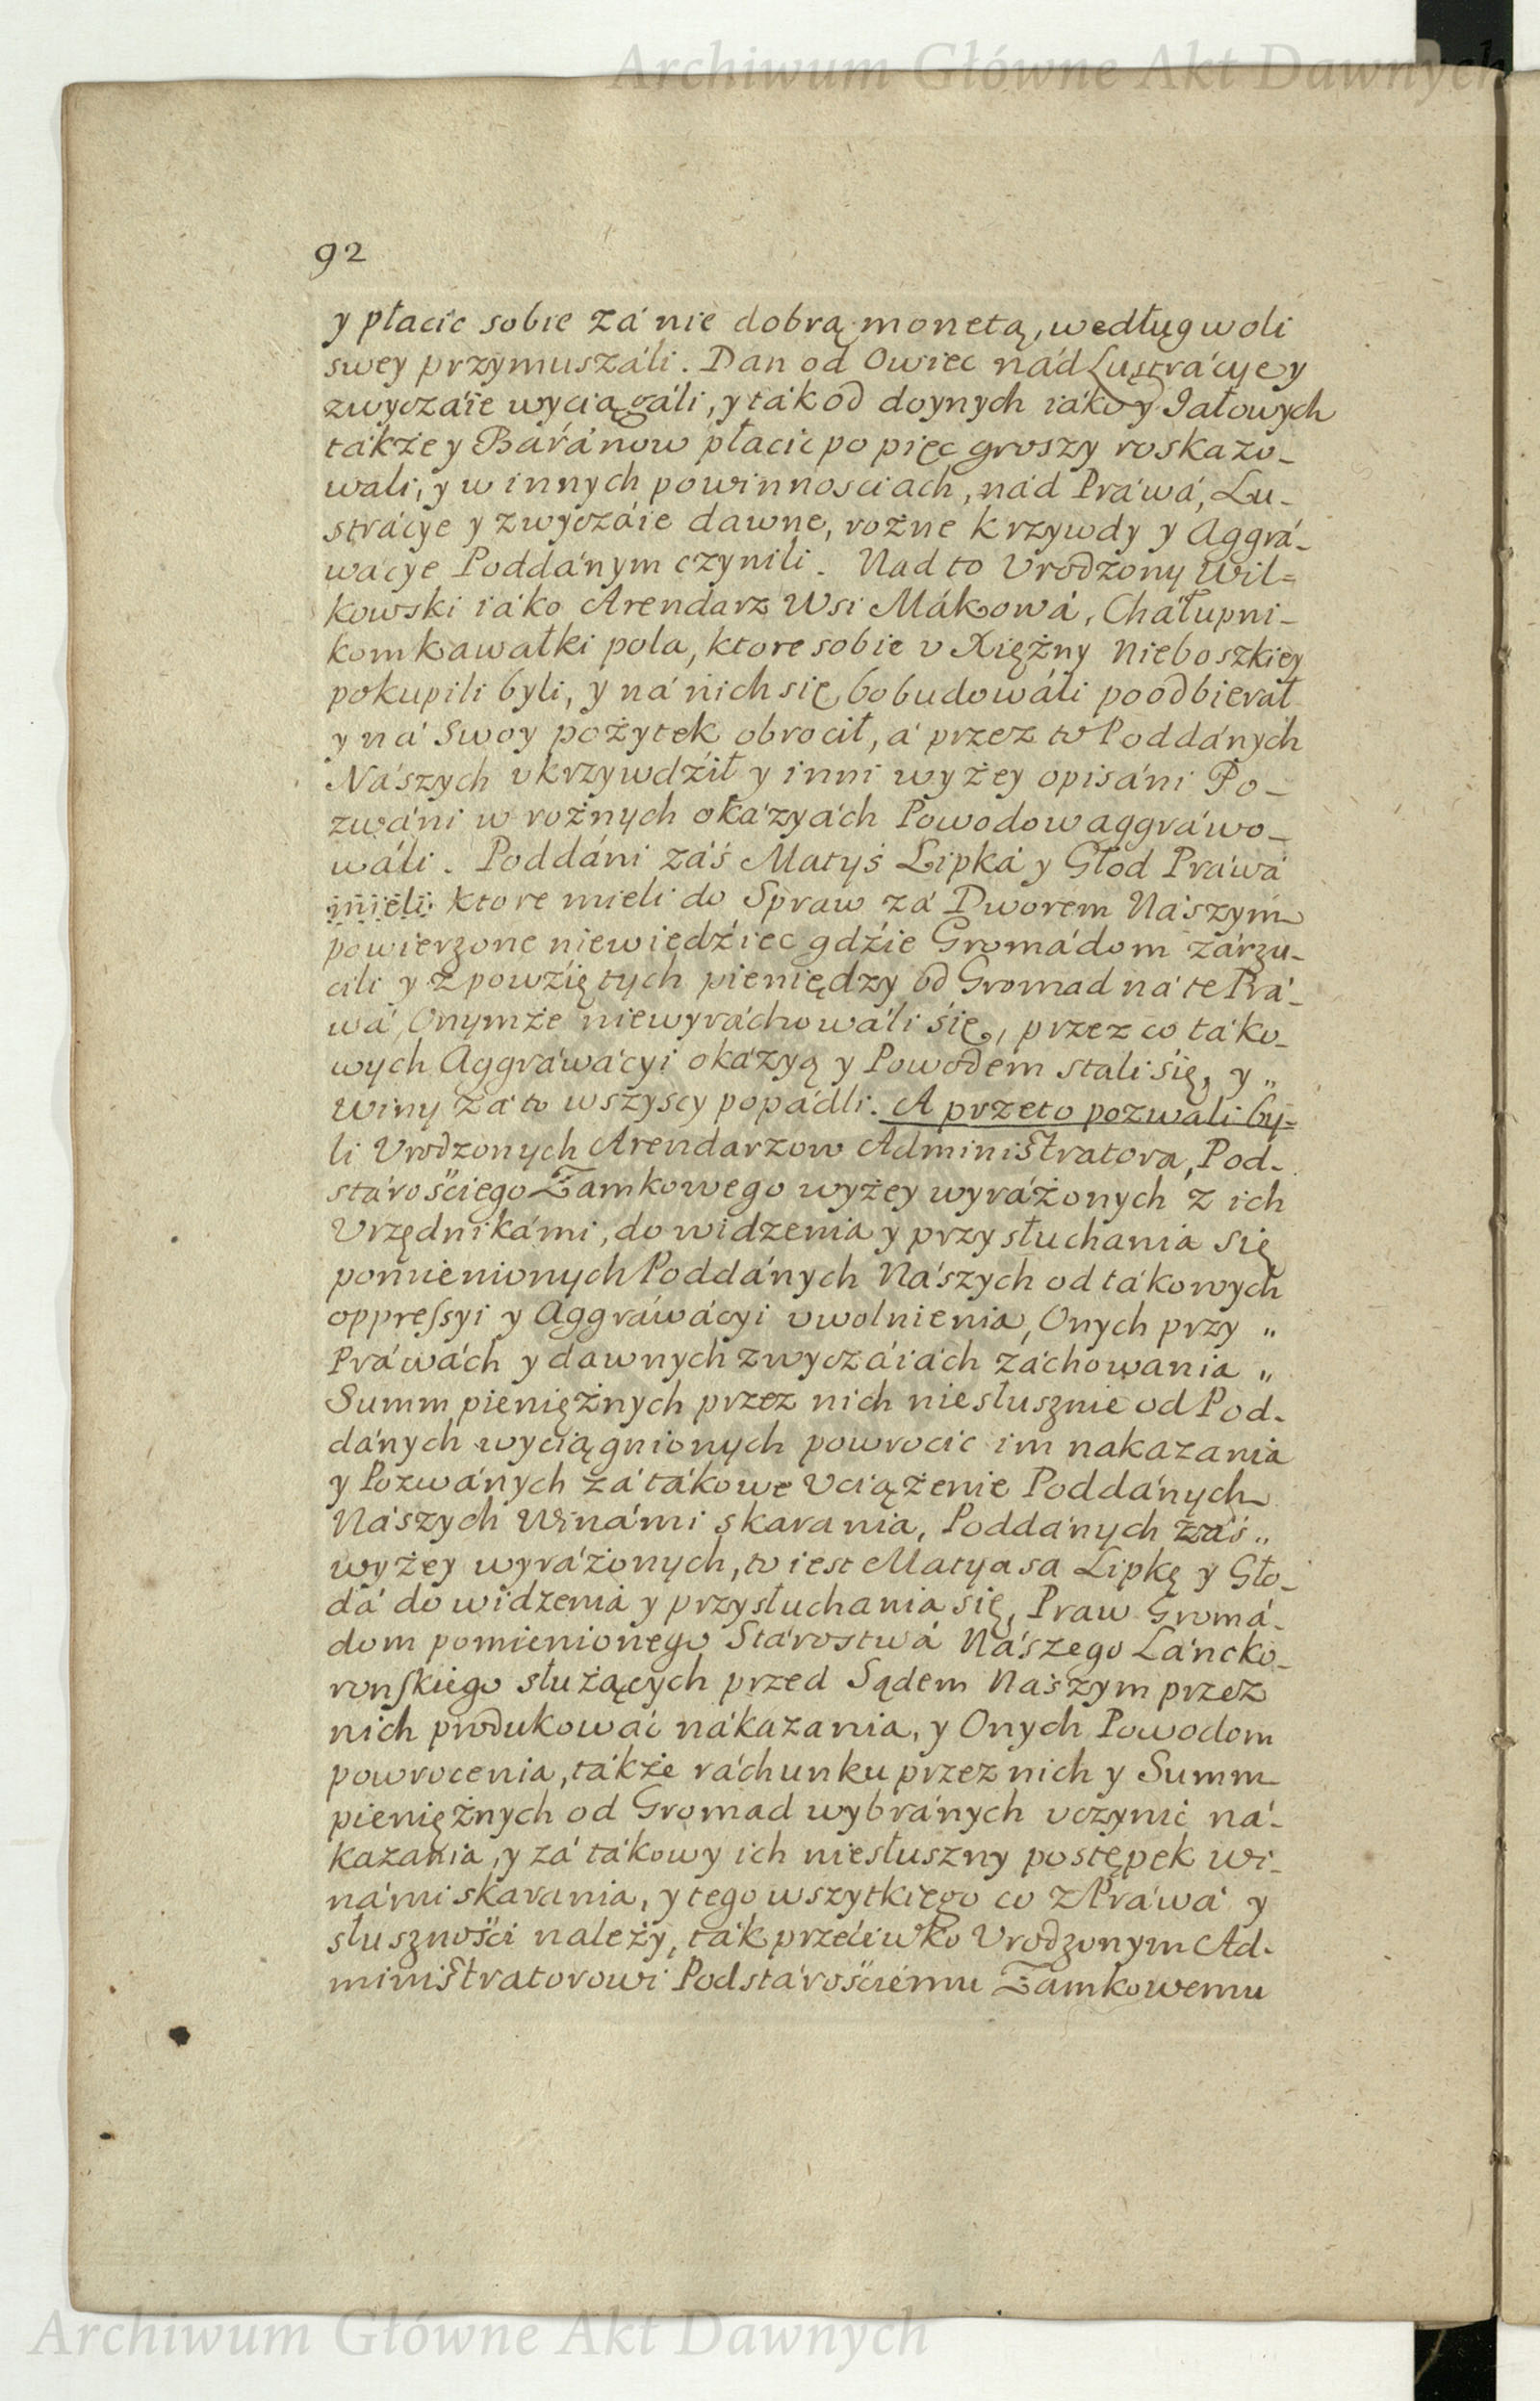 Archiwum Główne Akt Dawnych
92
y płacic sobie zá nie dobrą monetą, według woli
swey przymuszáli. Dan od Owiec nád Lustrácye y
zwyczáie wyciągáli, y ták od doynych iáko y Jałowych
tákże y Báránow płacic po pięc groszy roskazo-
wali, y w innych powinnosciach, nád Práwá, Lu-
strácye y zwyczáie dawne, rożne krzywdy y Aggrá-
wacye Poddánym czynili. Nad to Vrodzony Wil=
kowski iáko Arendarz Wsi Mákowá, Cháłupni-
kom kawałki pola, ktore sobie v Xiężny Nieboszkiey
pokupili byli, y ná nich się bobudowáli poodbierał
y ná Swoy pożytek obrocił, á przez to Poddánych
Nászych vkrzywdźił y inni wyżey opisáni Po-
zwáni w rożnych okázyách Powodow aggráwo-
wáli. Poddáni záś Matyś Lipká y Głod Práwá
mieli ktore mieli do Spraw zá Dworem Nászym
powierzone niewiedźiec gdźie Gromádom zárzu-
cili y z powźiętych pieniędzy od Gromad ná te Prá-
wá, Onymże niewyráchowáli śię, przez co táko-
wych Aggráwácyi okázyą y Powodem stali śię, y „
Winy zá to wszyscy popádli. A przeto pozwali by=
li Vrodzonych Arendarzow Administratora, Pod-
stárośćiego Zamkowego wyżey wyráżonych z ich
Vrzędnikámi, do widzenia y przysłuchania się
pomienionych Poddánych Nászych od tákowych
oppreſsyi y Aggráwácyi vwolnienia, Onych przy „
Práwách y dawnych zwyczáiách záchowania „
Summ pieniężnych przez nich niesłusznie od Pod-
dánych wyciągnionych powrocic im nakazania
y Pozwánych zá tákowe Vciążenie Poddánych
Nászych Winámi skarania, Poddánych záś „
wyżey wyráżonych, to iest Matyasa Lipkę y Gło-
dá do widzenia y przysłuchania się, Praw Gromá-
dom pomienionego Stárostwá Nászego Láncko-
ronſkiego służących przed Sądem Nászym przez
nich produkowáć nákazania, y Onych Powodom
powrocenia, tákże ráchunku przez nich y Summ
pieniężnych od Gromad wybránych vczynić ná-
kazania, y zá tákowy ich niesłuszny postępek wi-
námi skarania, y tego wszytkiego co z Práwá y
słusznośći należy, ták przećiwko Vrodzonym Ad-
ministratorowi Podstárośćiemu Zamkowemu
Archiwum Główne Akt Dawnych